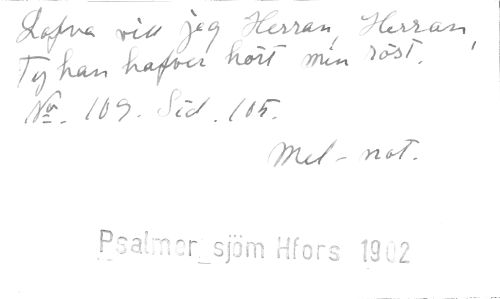 Lofva vill jag Herran, Herran,
Ty han hafver hört min röst.
No. 109. Sid. 105.
Mel-not.
Psalmer_sjöm Hfors 1902